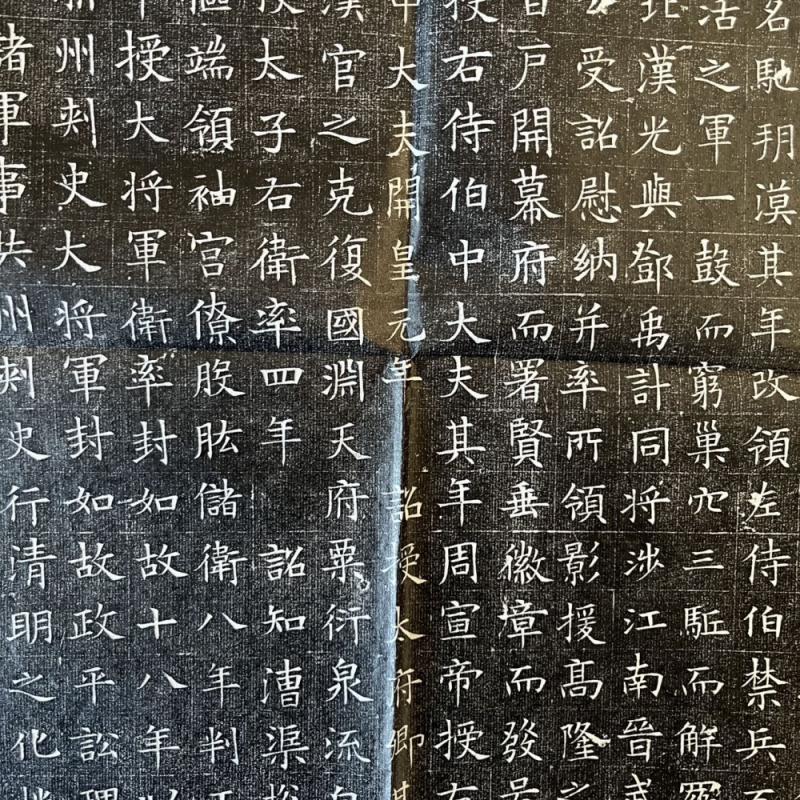 名馳朔漠其年改領左侍伯禁兵
活之軍一鼓而窮巢穴三駈而解
北漢光與鄧禹計同将涉江南晉武
受詔慰納并率所領影援髙隆之
百戸開幕府而署賢垂徽章而發号
授右侍伯中大夫其年周宣帝授右
中大夫開皇元年詔授太府卿其
漢官之克復國淵天府粟衍泉流
授太子右衛率四年詔知漕渠
端領袖宮僚股肱儲衛八年判
授大将軍衛率封如故十八年以
州刾史大将軍封如故政平訟理
諸軍事洪州刾史行清明之化